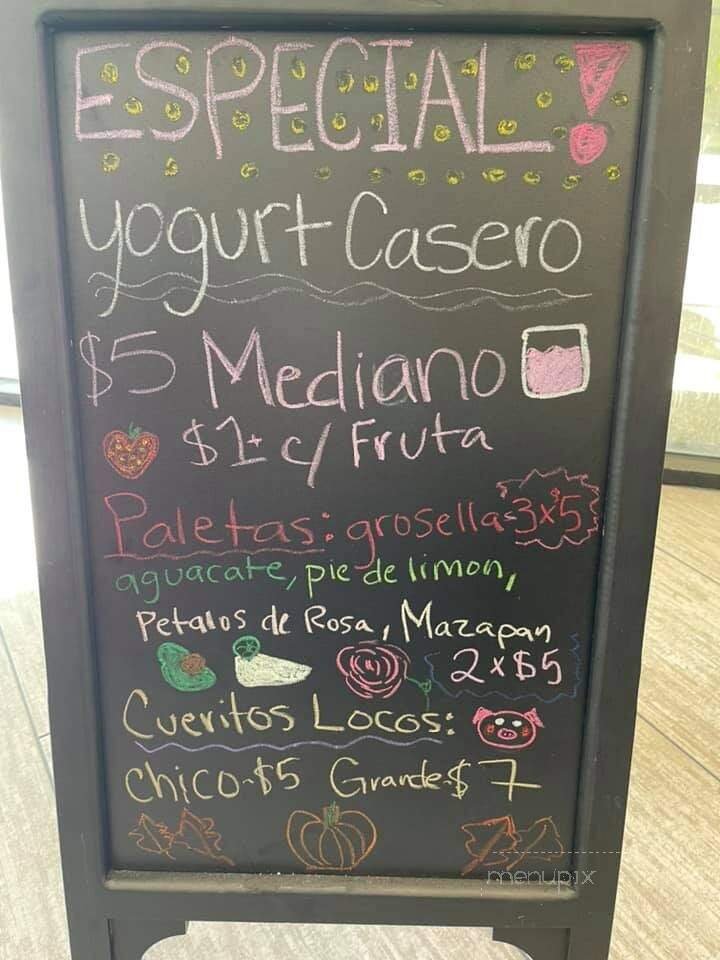 ESPECIAL!
yogurt Casero
$5 Mediano
$1+ c/ Fruta
Paletas: grosella-3x$5
aguacate, pie de limon,
Petalos de Rosa, Mazapan
2x$5
Cueritos Locos:
Chico-$5 Grande-$7
menupix